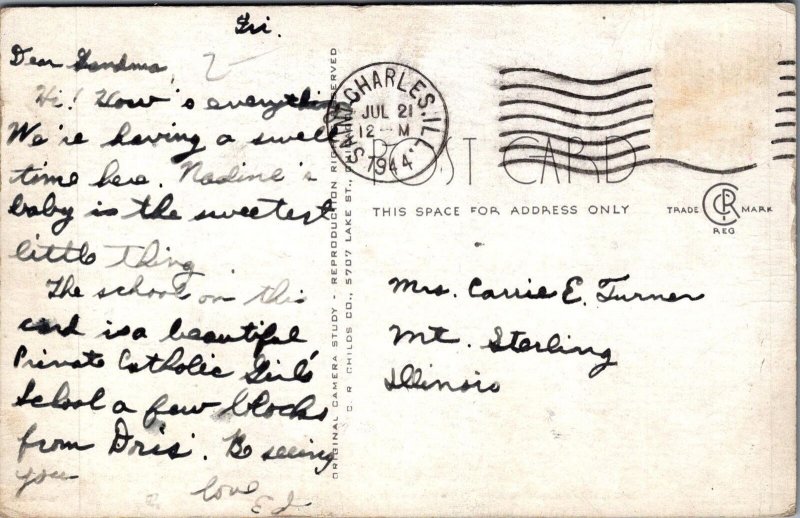 Fri.
Dear Grandma,
Hi! How's everything
We're having a swell
time here. Nadine's
baby is the sweetest
little thing
The school on this
card is a beautiful
Private Catholic Girls'
School a few blocks
from Doris'. Be seeing
you
love
ORIGINAL CAMERA STUDY - REPRODUCTION RIGHTS RESERVED
C. R. CHILDS CO., 5707 LAKE ST., CHICAGO
SAINT CHARLES, ILL.
JUL 21
12 - M
1944
POST CARD
THIS SPACE FOR ADDRESS ONLY
TRADE CRC MARK
REG
Mrs. Carrie E. Turner
Mt. Sterling
Illinois